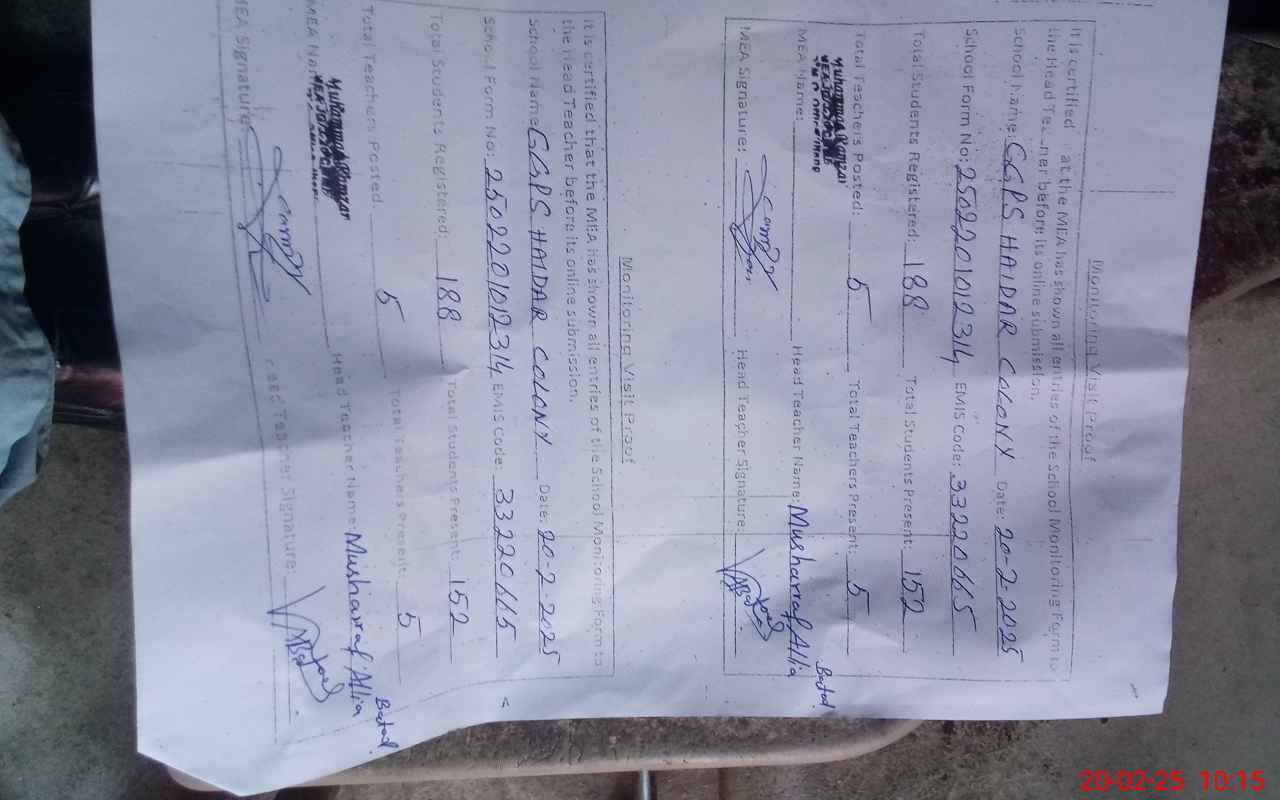 Monitoring Visit Proof
It is certified at the MEA has shown all entries of the School Monitoring Form to
the Head Teacher before its online submission.
School Name: GGPS HAIDAR COLONY Date: 20-2-2025
School Form No: 2502201012314 EMIS Code: 33220665
Total Students Registered: 188 Total Students Present: 152
Total Teachers Posted: 5 Total Teachers Present: 5
MEA Name: Head Teacher Name: Musharraf Allia Batool
MEA Signature: Head Teacher Signature:
Monitoring Visit Proof
It is certified that the MEA has shown all entries of the School Monitoring Form to
the Head Teacher before its online submission.
School Name: GGPS HAIDAR COLONY Date: 20-2-2025
School Form No: 2502201012314 EMIS Code: 33220665
Total Students Registered: 188 Total Students Present: 152
Total Teachers Posted: 5 Total Teachers Present: 5
MEA Name Head Teacher Name: Musharraf Allia Batool
MEA Signature: Head Teacher Signature:
20-02-25 10:15